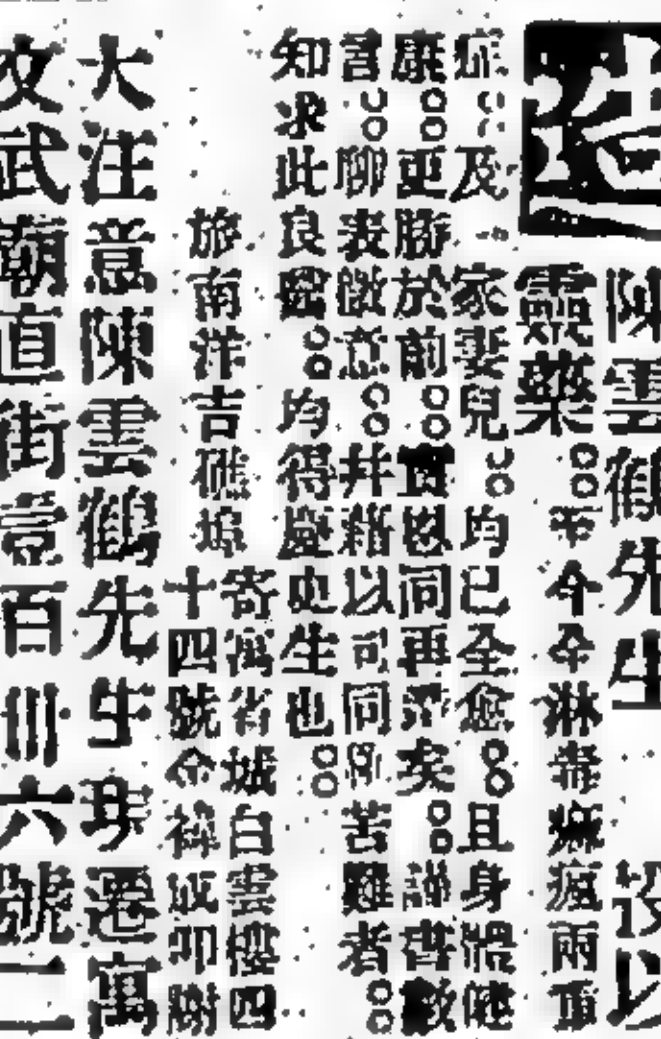 造
陳雲鶴先生 授以
靈藥○○ 今 淋 瘋兩
症○○及 家妻兒○○均已全愈○○且身體
康○○更勝於前○○ 同再 矣○○謹書
言○○聊表微意○○并藉以 同 苦難者○○
知求此良醫○○均得慶更生也○○
旅南洋吉礁埠 寄寓省城白雲樓四
十四號 叩謝
大注意陳雲鶴先生現遷寓
文武廟直街壹百川六號二